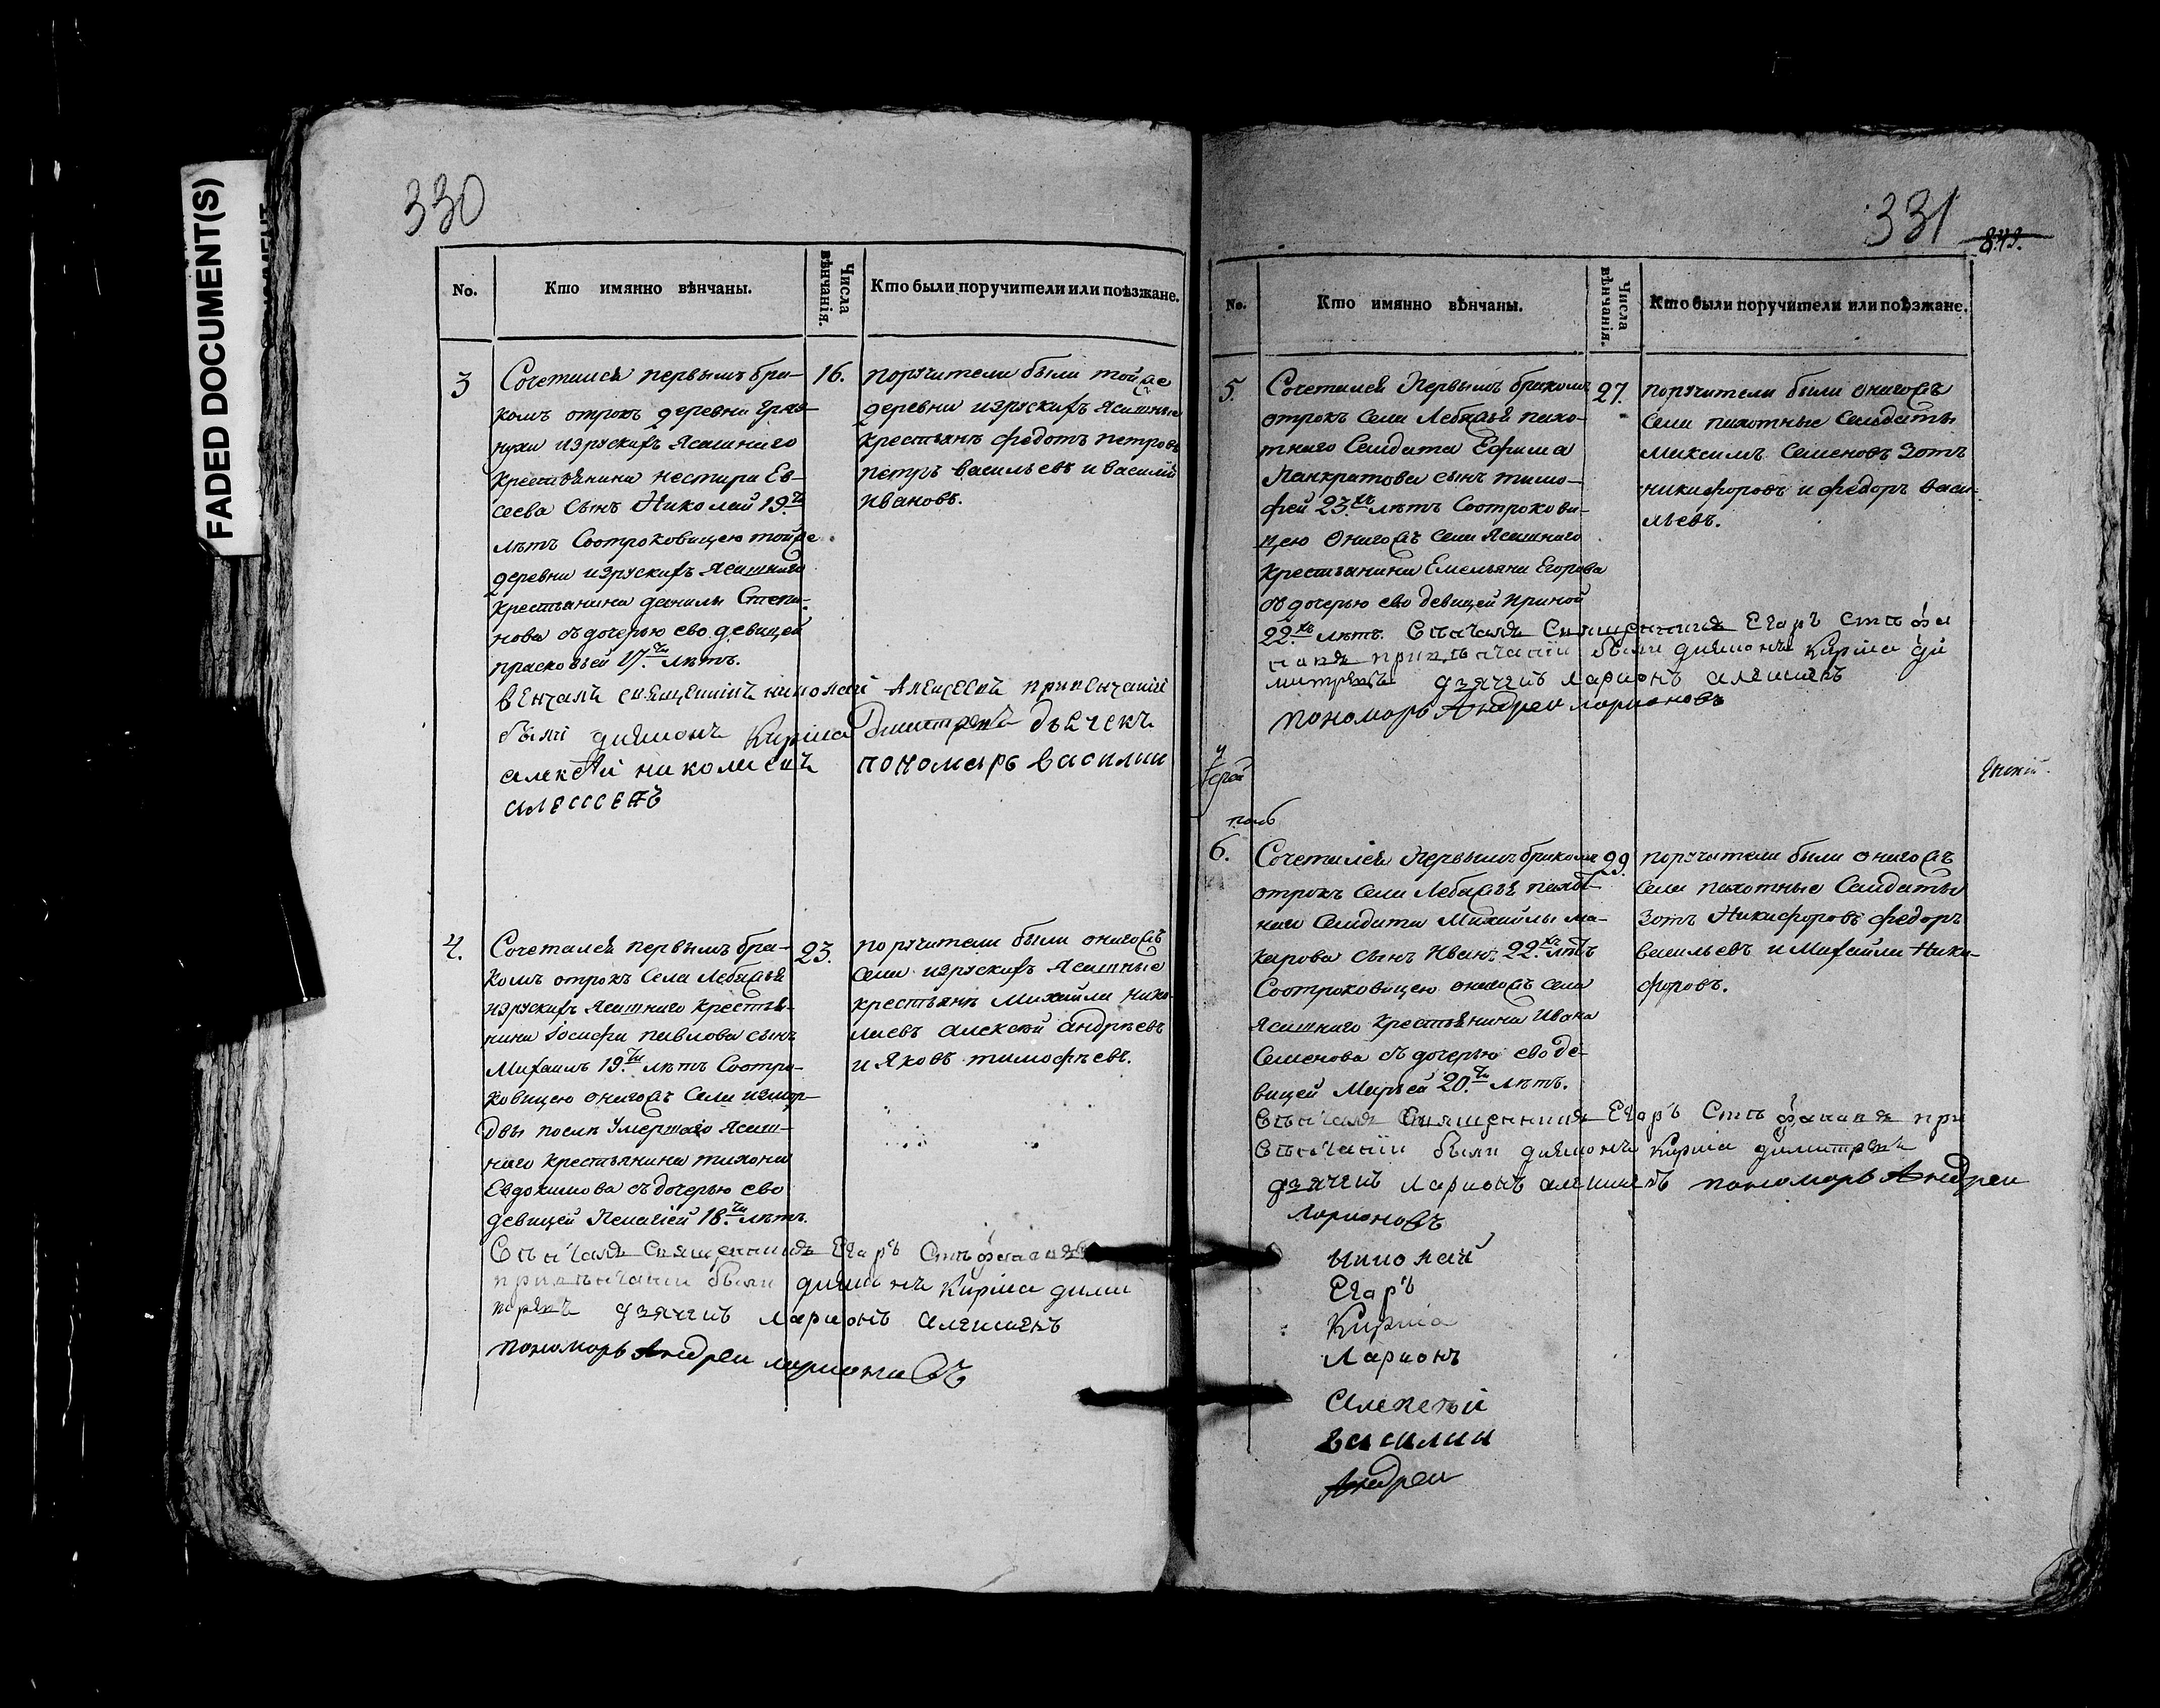 FADED DOCUMENT(S)
330
No.
Кто имянно вѣнчаны.
Числа вѣнчанія.
Кто были поручители или поѣзжане.
3
Сочетался первымъ бра-
комъ отрокъ деревни Гряз-
нухи изрускихъ Ясашнаго
крестьянина нестира Ев-
сеева сынъ Николай 19.ти
лѣтъ Соотроковицею тойже
деревни изрускихъ Ясашнаго
крестьянина данилы Степа-
нова съ дочерью ево девицей
прасковьей 17.ти лѣтъ.
16.
поручители были тойже
деревни изрускихъ Ясашные
крестьянѣ федотъ петровъ
петръ васильевъ и василий
ивановъ.
вѣнчалъ священникъ николай Алексеевъ привенчаніи
были диаконъ Кирила Дмитревъ дьечекъ
алексѣй николаевъ пономарь василии
алексеевъ
4.
Сочетался первымъ бра-
комъ отрокъ Села Лебяжья
изрускихъ Ясашнаго крестья-
нина Іосифа павлова сынъ
Михаилъ 19.ти лѣтъ Соотро-
ковицею оногожъ Села измор-
двы послѣ Умершаго Ясаш-
наго крестьянина тихона
Евдокимова съ дочерью ево
девицей Пелагіей 18.ти лѣтъ.
23.
поручители были оногожъ
села изрускихъ Ясашные
крестьянѣ Михайла нико-
лаевъ алексѣй андреевъ
и Яковъ тимофѣевъ.
Вѣнчалъ священникъ Егоръ Стефановъ
привѣнчании были диаконъ Кирила дими
тревъ дьячекъ Ларионъ
пономарь Андреи ларионовъ
331
843.
No.
Кто имянно вѣнчаны.
Числа вѣнчанія.
Кто были поручители или поѣзжане.
5.
Сочетался Первымъ бракомъ
отрокъ Села Лебяжья пахо-
тнаго Салдата Ефима
Панкратова сынъ тимо-
фей 23.хъ лѣтъ Соотрокови-
цею Оногожъ села Ясашнаго
крестьянина Емельяна Егорова
съ дочерью ево девицей Ириной
22.хъ лѣтъ. Вѣнчалъ Священникъ Егоръ Стефа
новъ привѣнчании были диаконъ Кирила ди
митревъ дьячекъ Ларионъ
пономарь Андреи ларионовъ
27.
поручители были оногожъ
села пахотные Салдаты
Максимъ Семеновъ Зотъ
никифоровъ и федоръ васи-
льевъ.
6.
Сочетался Первымъ бракомъ
отрокъ Села Лебяжья пахот-
наго Салдата Михайлы ма-
карова сынъ Иванъ 22.хъ лѣтъ
Соотроковицею оногожъ села
Ясашнаго крестьянина Ивана
Семенова съ дочерью ево де-
вицей Марьей 20.ти лѣтъ.
29.
поручители были оногожъ
села пахотные Салдаты
Зотъ Никифоровъ федоръ
васильевъ и Михайла Ники-
форовъ.
Вѣнчалъ Священникъ Егоръ Стефановъ при
вѣнчании были диаконъ Кирила димитревъ
дьячекъ Ларионъ пономарь Андреи
Ларионовъ
николай
Егоръ
Кирила
Ларионъ
Алексѣй
василии
Андреи